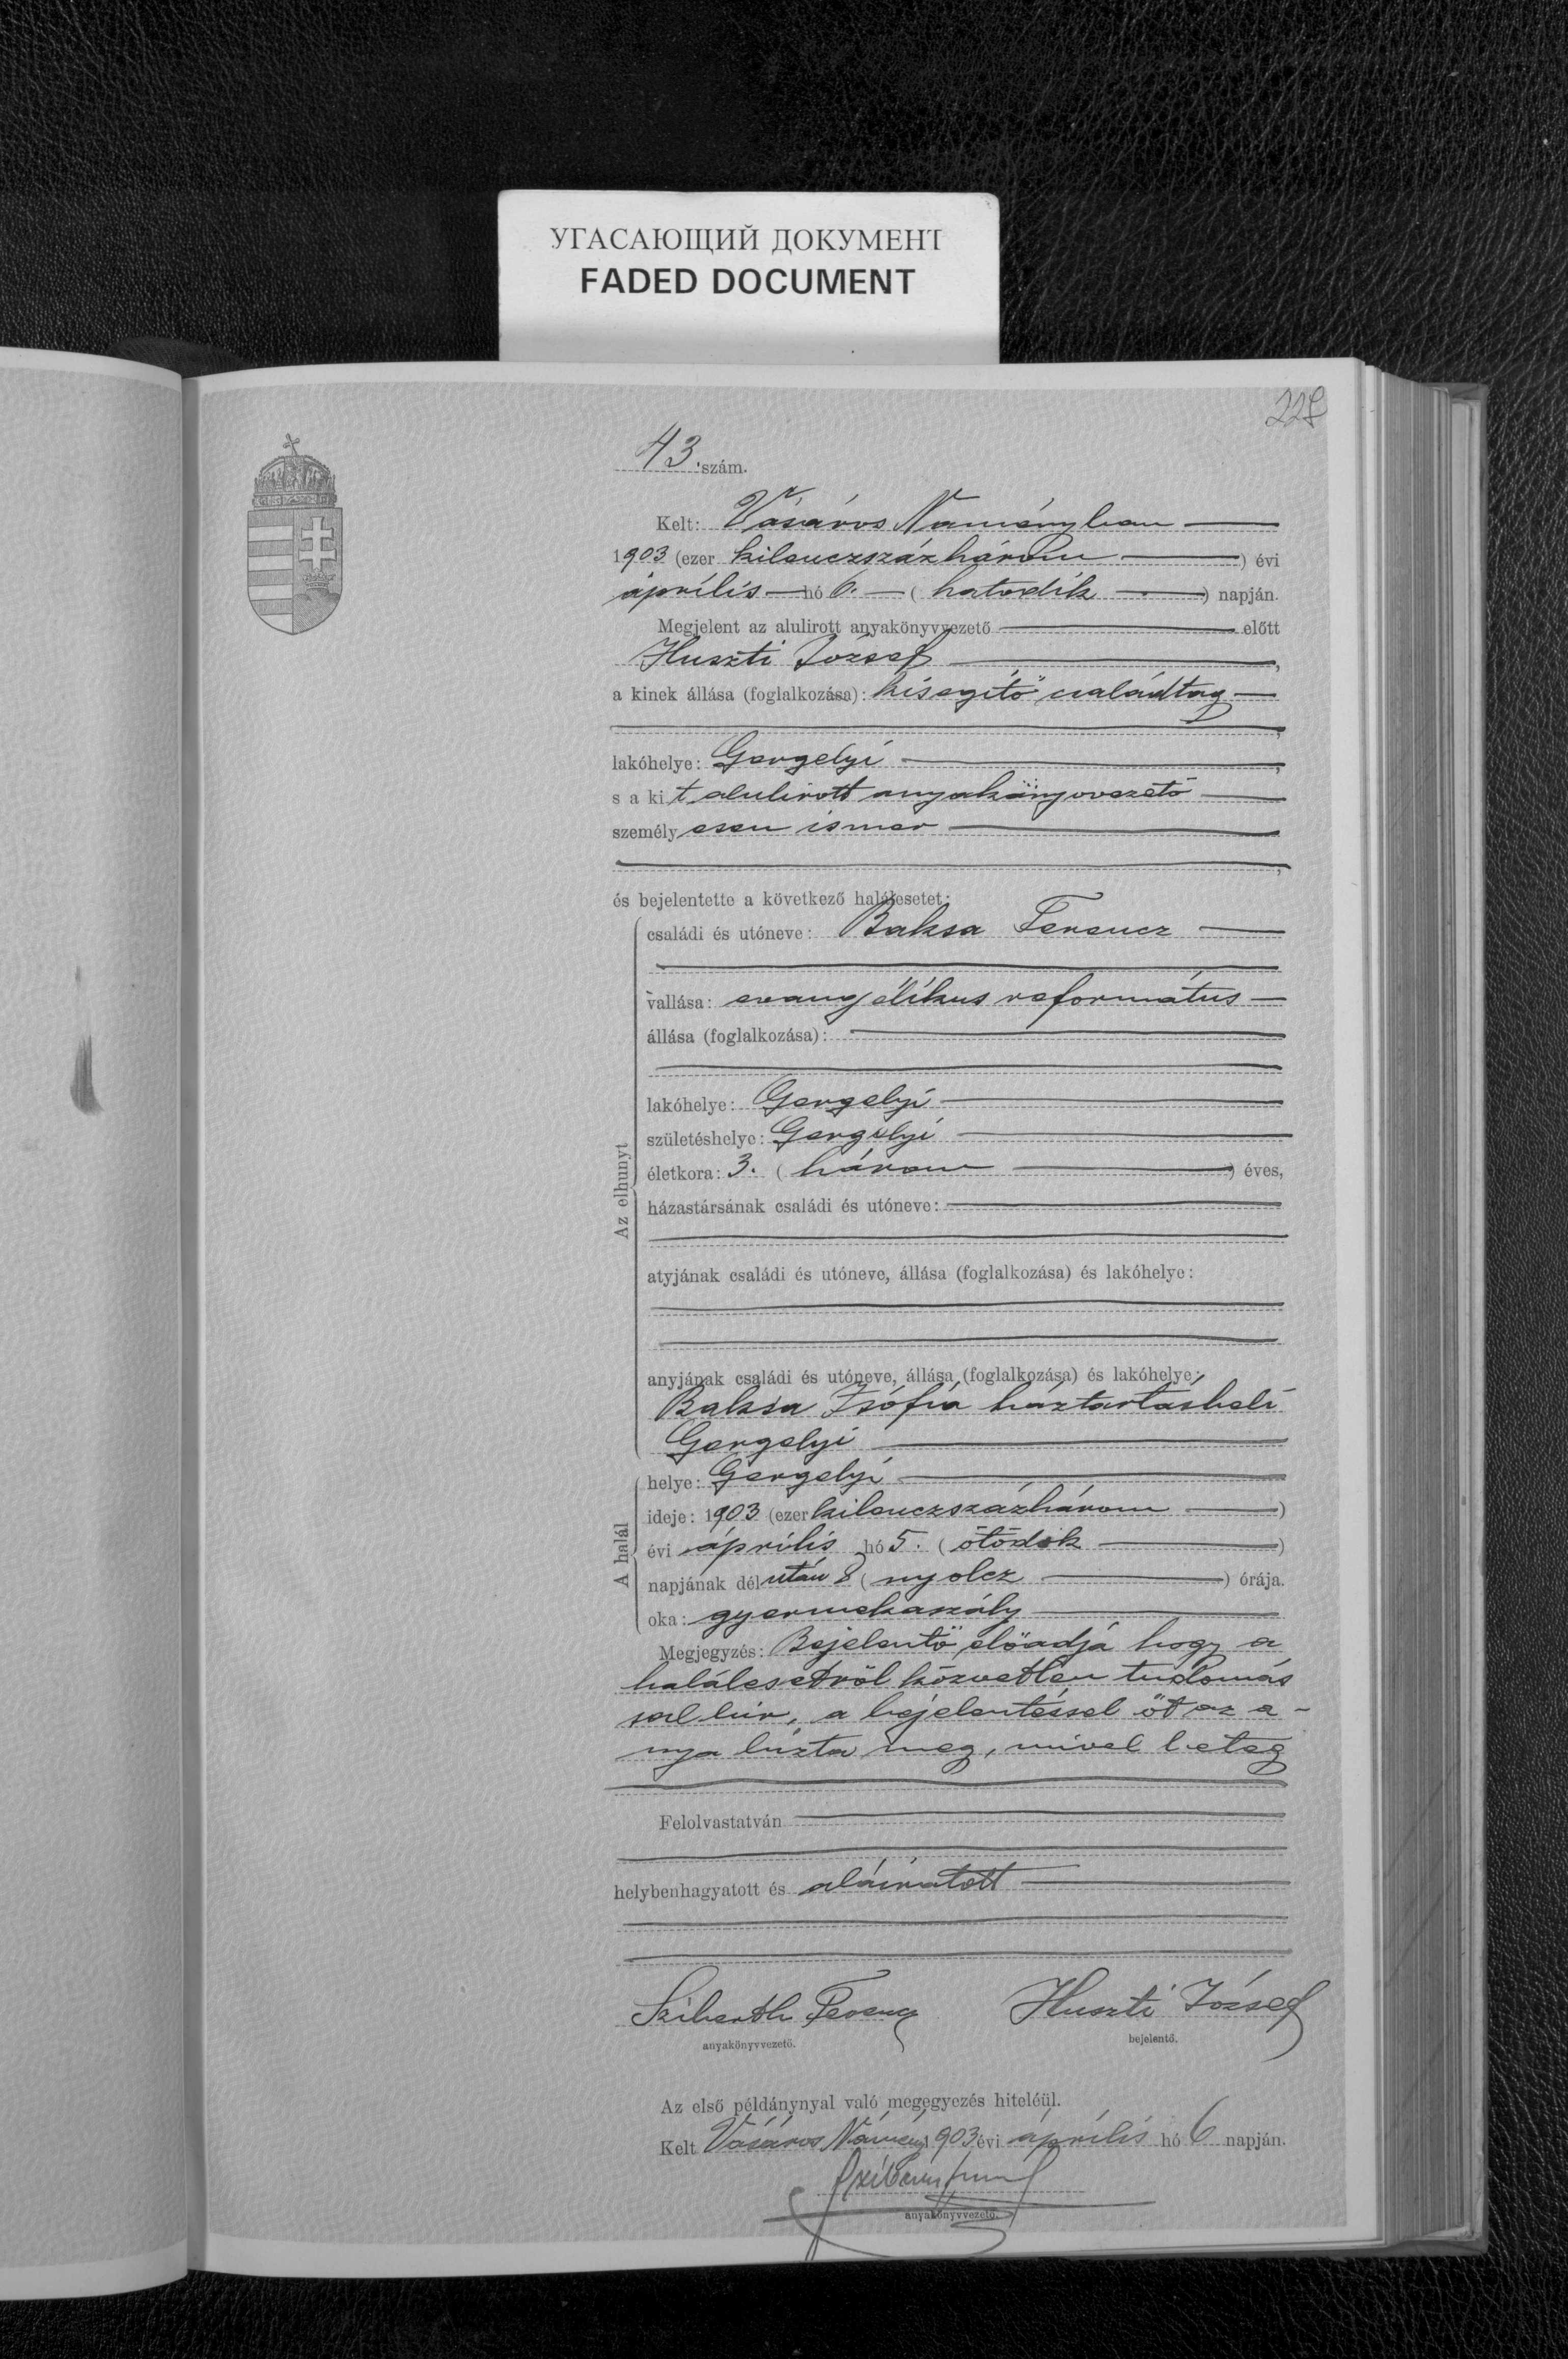 УГАСАЮЩИЙ ДОКУМЕНТ
FADED DOCUMENT
43. szám.
Kelt: Vásáros Naményban
1903 (ezer kilenczszázhárom) évi
április hó 6. (hatodik) napján.
Megjelent az alulirott anyakönyvvezető előtt
Huszti József,
a kinek állása (foglalkozása): kisegítő családtag,
lakóhelye: Gergelyi,
s a kit alulirott anyakönyvvezető
személyesen ismer,
és bejelentette a következő halálesetet:
Az elhunyt
családi és utóneve: Baksa Ferencz
vallása: evangélikus református
állása (foglalkozása):
lakóhelye: Gergelyi
születéshelye: Gergelyi
életkora: 3. (három) éves,
házastársának családi és utóneve:
atyjának családi és utóneve, állása (foglalkozása) és lakóhelye:
anyjának családi és utóneve, állása (foglalkozása) és lakóhelye:
Baksa Zsófia háztartásbeli
Gergelyi
A halál
helye: Gergelyi
ideje: 1903 (ezer kilenczszázhárom)
évi április hó 5. (ötödik)
napjának délután 8 (nyolcz) órája.
oka: gyermekaszály
Megjegyzés: Bejelentő előadja hogy a
halálesetről közvetlen tudomás
sal bir, a bejelentéssel őt az a-
nya bízta meg, mivel beteg
Felolvastatván
helybenhagyatott és aláiratott
Sziberth Ferencz Huszti József
anyakönyvvezető. bejelentő.
Az első példánynyal való megegyezés hiteléül.
Kelt Vásáros Namény 1903 évi április hó 6 napján.
anyakönyvvezető.